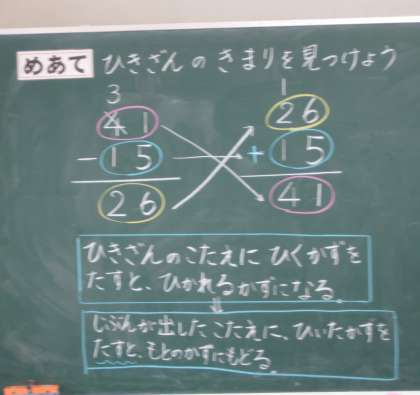 めあて ひきざんのきまりを見つけよう
3 1
41 26
-15 +15
26 41
ひきざんのこたえに ひくかずを
たすと、ひかれるかずになる。
⇓
じぶんが出したこたえに、ひいたかずを
たすと、もとのかずにもどる。